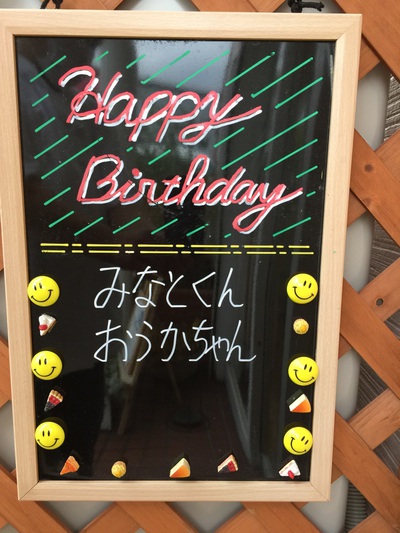 Happy
Birthday
みなとくん
おうかちゃん